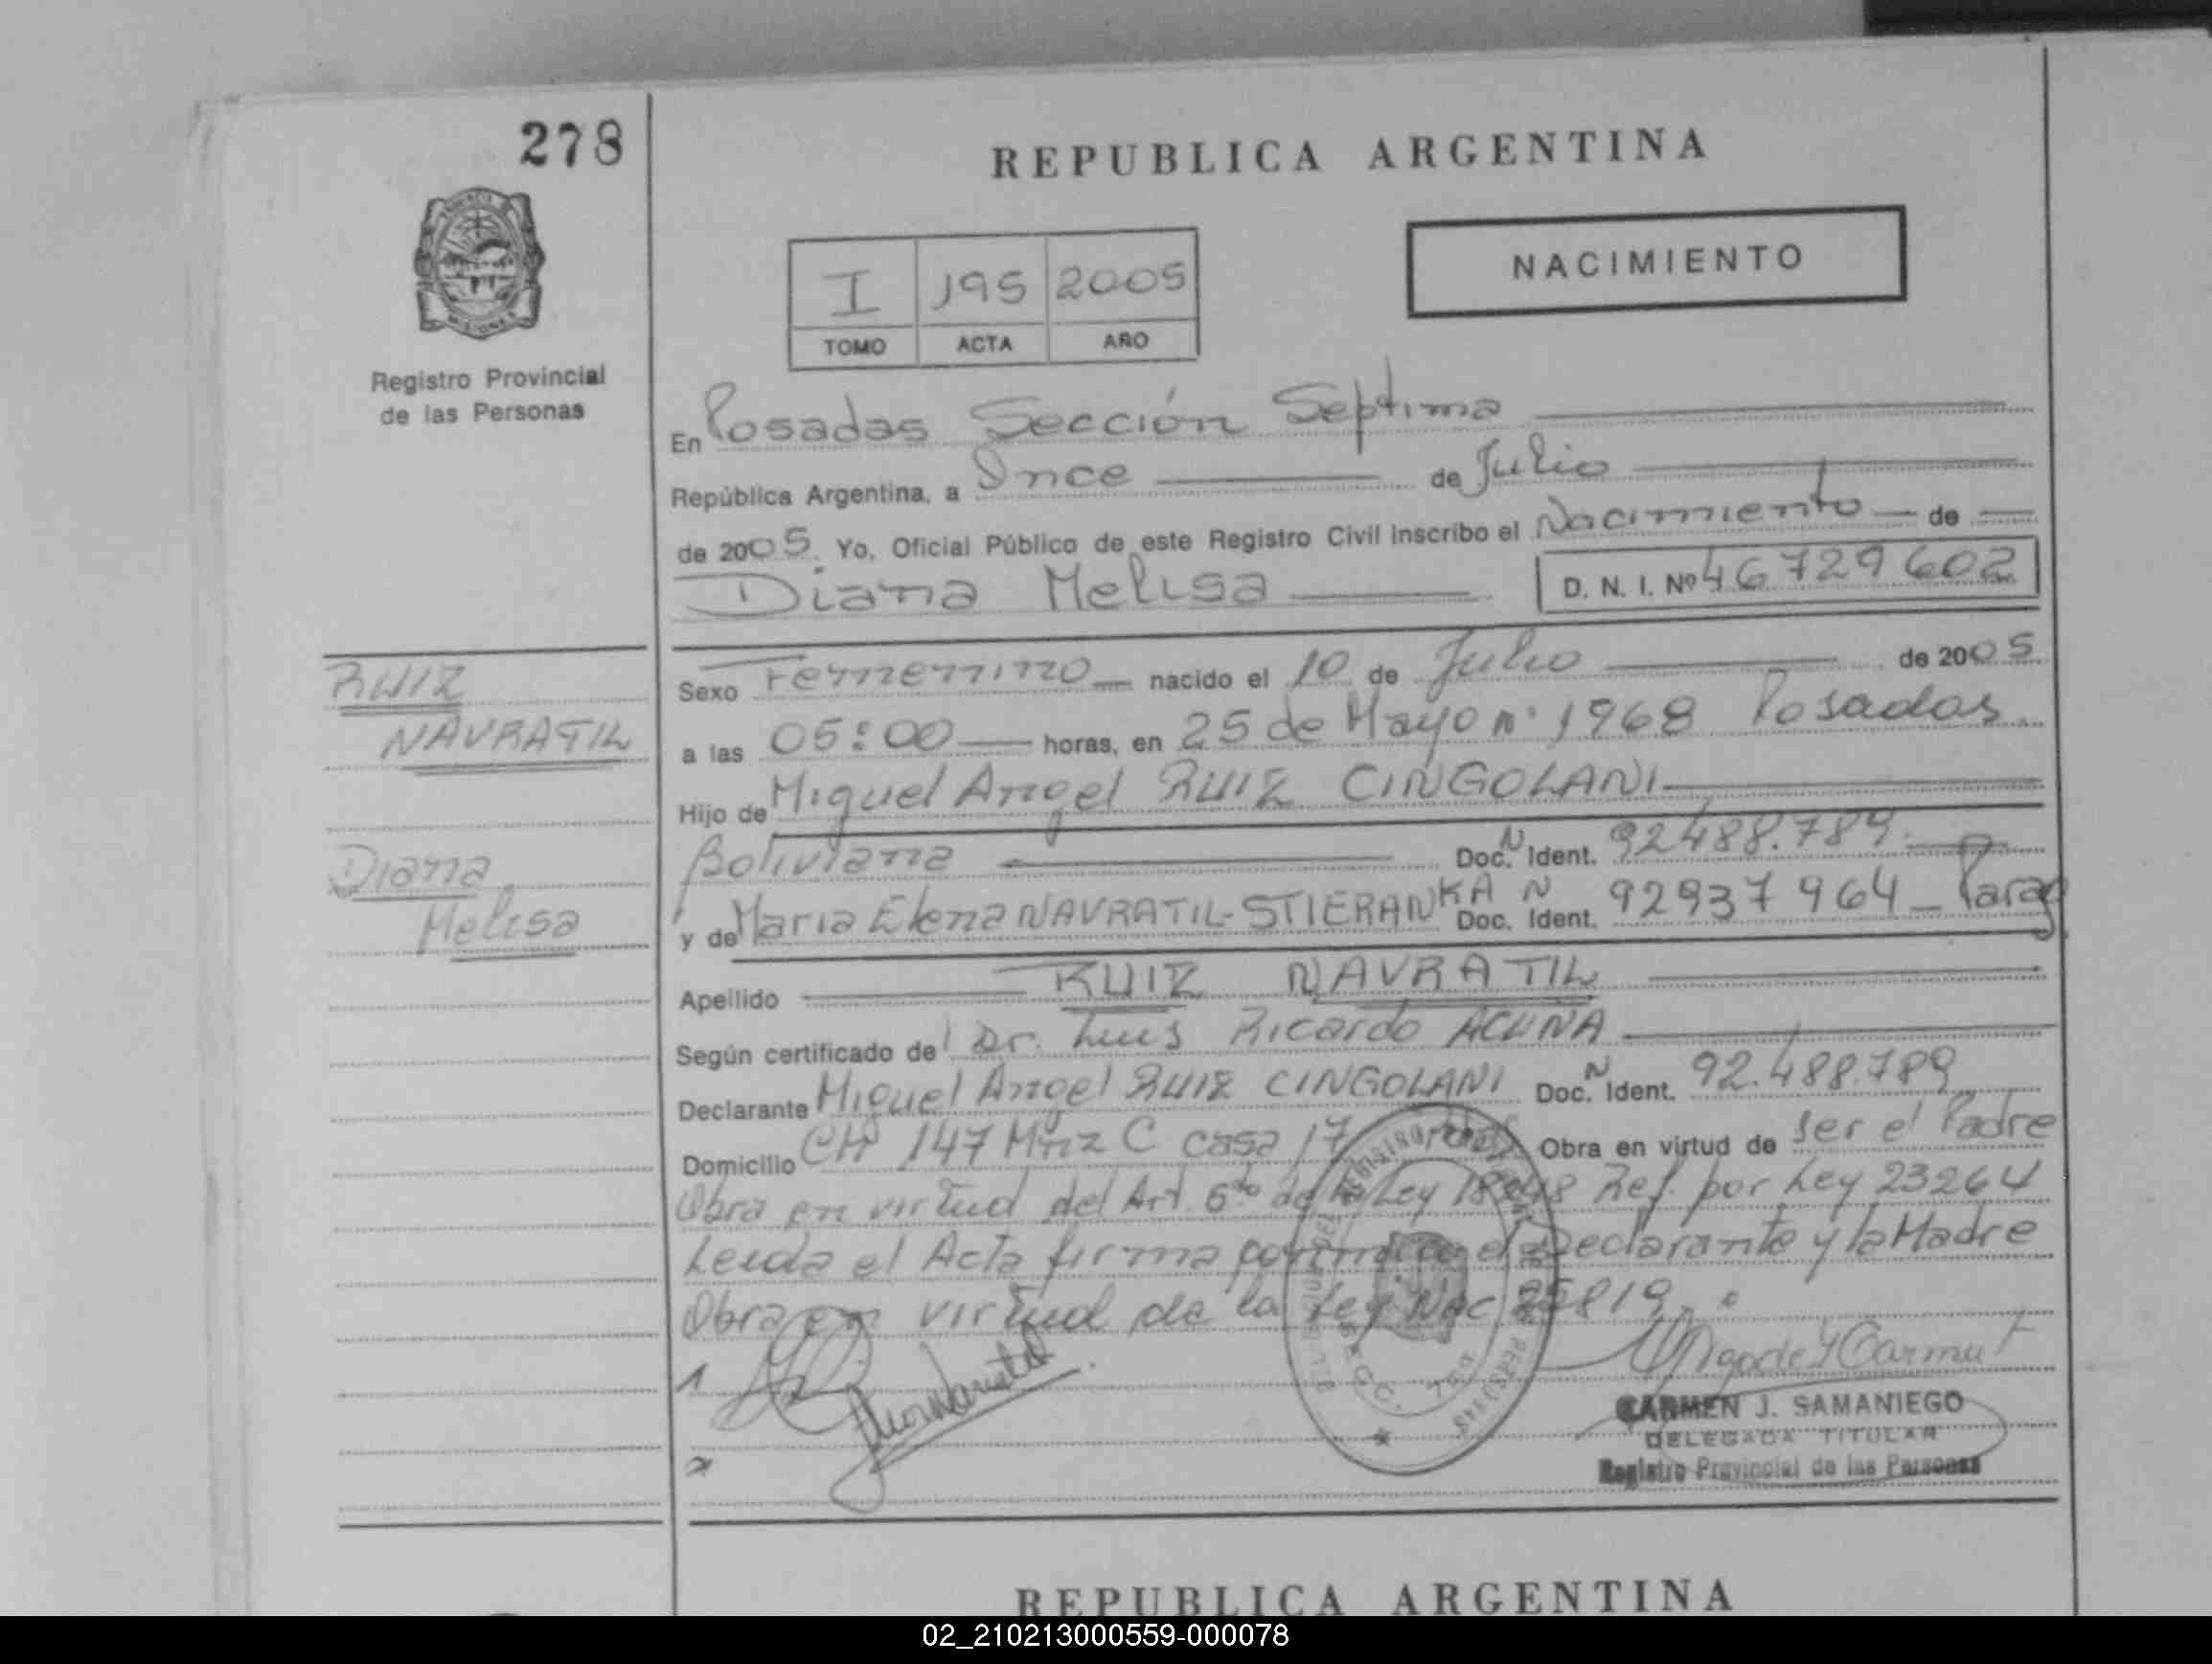 278
REPUBLICA ARGENTINA
NACIMIENTO
I 195 2005
TOMO ACTA AÑO
MISIONES
Registro Provincial
de las Personas
En Posadas Sección Septima
República Argentina, a Once de Julio
de 2005. Yo, Oficial Público de este Registro Civil inscribo el Nacimiento de
Diana Melisa
D. N. I. Nº 46729602
RUIZ
NAVRATIL
Diana
Melisa
Sexo Femenino nacido el 10 de Julio de 2005
a las 05:00 horas, en 25 de Mayo nº 1968 Posadas
Hijo de Miguel Angel RUIZ CINGOLANI
Boliviana Doc. N Ident. 92488.789
y de Maria Elena NAVRATIL-STIERANKA Doc. N Ident. 92937964 - Parag
Apellido RUIZ NAVRATIL
Según certificado del Dr. Luis Ricardo ACUÑA
Declarante Miguel Angel RUIZ CINGOLANI Doc. N Ident. 92.488.789
Domicilio CH 147 Mnz C casa 17 Obra en virtud de ser el Padre
Obra en virtud del Art. 5to de la Ley 18248 Ref. por Ley 23264
Leida el Acta firma conmigo el Declarante y la Madre
Obra en virtud de la Ley Nac 25819
1
2
CARMEN J. SAMANIEGO
DELEGADA TITULAR
Registro Provincial de las Personas
REPUBLICA ARGENTINA
02_210213000559-000078